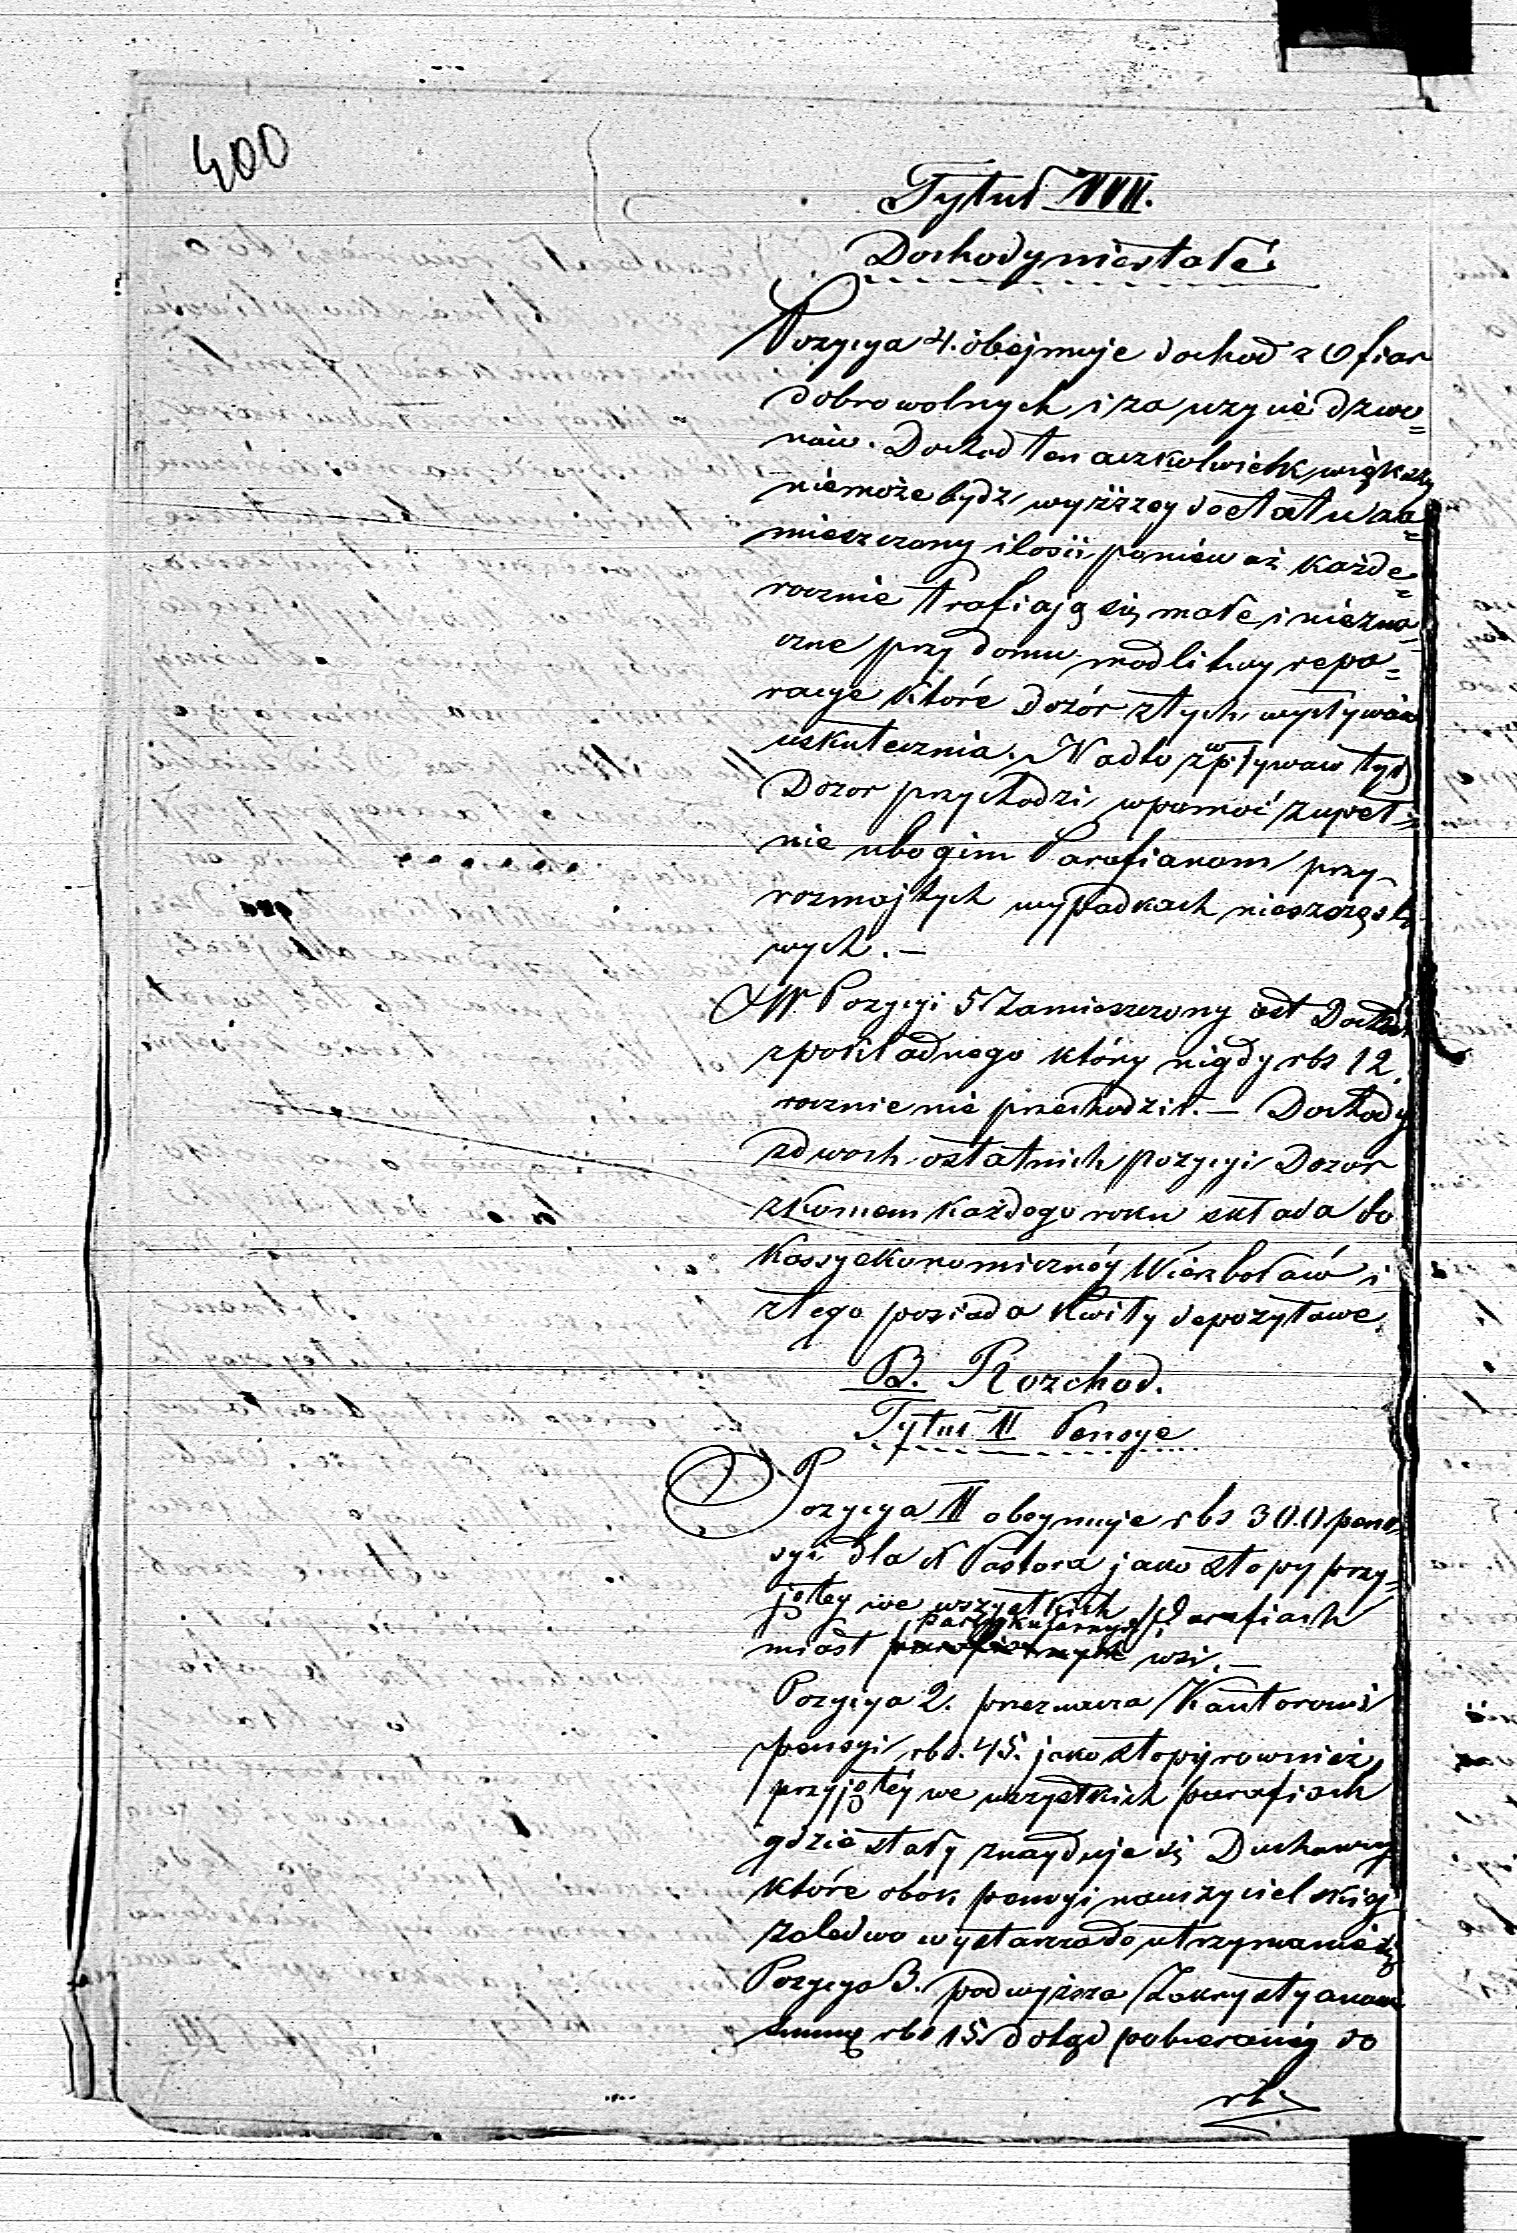 400
Tytuł VIII.
Dochody niestałe
Pozycya 4. obejmuje dochod z Ofiar
dobrowolnych i za uzycie dzwo=
nów. Dochod ten aczkolwiek większy
niemoże bydź wyższey do etatu za=
mieszczony ilosii poniewaź każde=
rocznie trafiają się małe i niezna=
czne przy domu modlitwy repa=
racye które Dozór z tych wpływów
uskutecznia. Nadto z wpływow tych
Dozor przychodzi w pomoć zupeł=
nie ubogim Parafianom przy
rozmajtych wypadkach nieszczęśli
wych. —
W Pozycyi 5 Zamieszczony jest Dochód
z pokładnego który nigdy rbs 12.
rocznie nie przechodził. — Dochody
z dwoch ostatnich pozycyi Dozor
z koncem każdego roku składa do
Kassy ekonomicznéy Wierzboław i
z tego posiada Kwity depozytowe
B. Rozchod.
Tytuł II Pensye
Pozycya 1 obeymuje rbs 300 pen=
syi dla X Pastora jako stopy przy=
jętey we wszystkich Parafiach
miast partykularnych wsi. —
Pozycya 2. przeznacza Kantorowi
pensyi rbs. 45. jako stopy rownież
przyjętéy we wszystkich parafiach
gdzie stały znayduje się Duchowny
które obok pensyi nauczycielskiéj
zaledwo wystarcza do utrzymanie się
Pozycya 3. podwyższa Zakrystyanowi
summę rbs 15 dotąd pobieranéy do
rbs